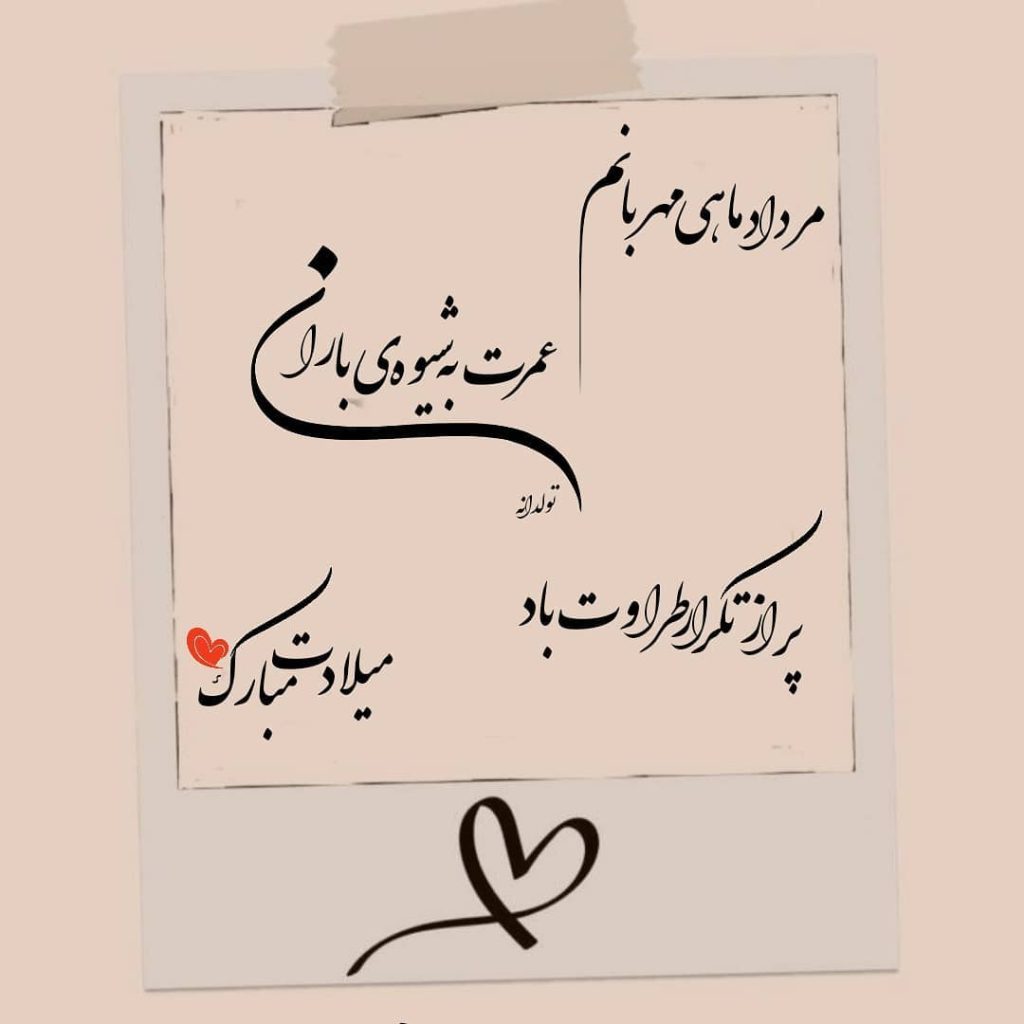 مردادماهی مهربانم
عمرت به شیوه‌ی باران
تولدانه
پر از تکرار طراوت باد
میلادت مبارک